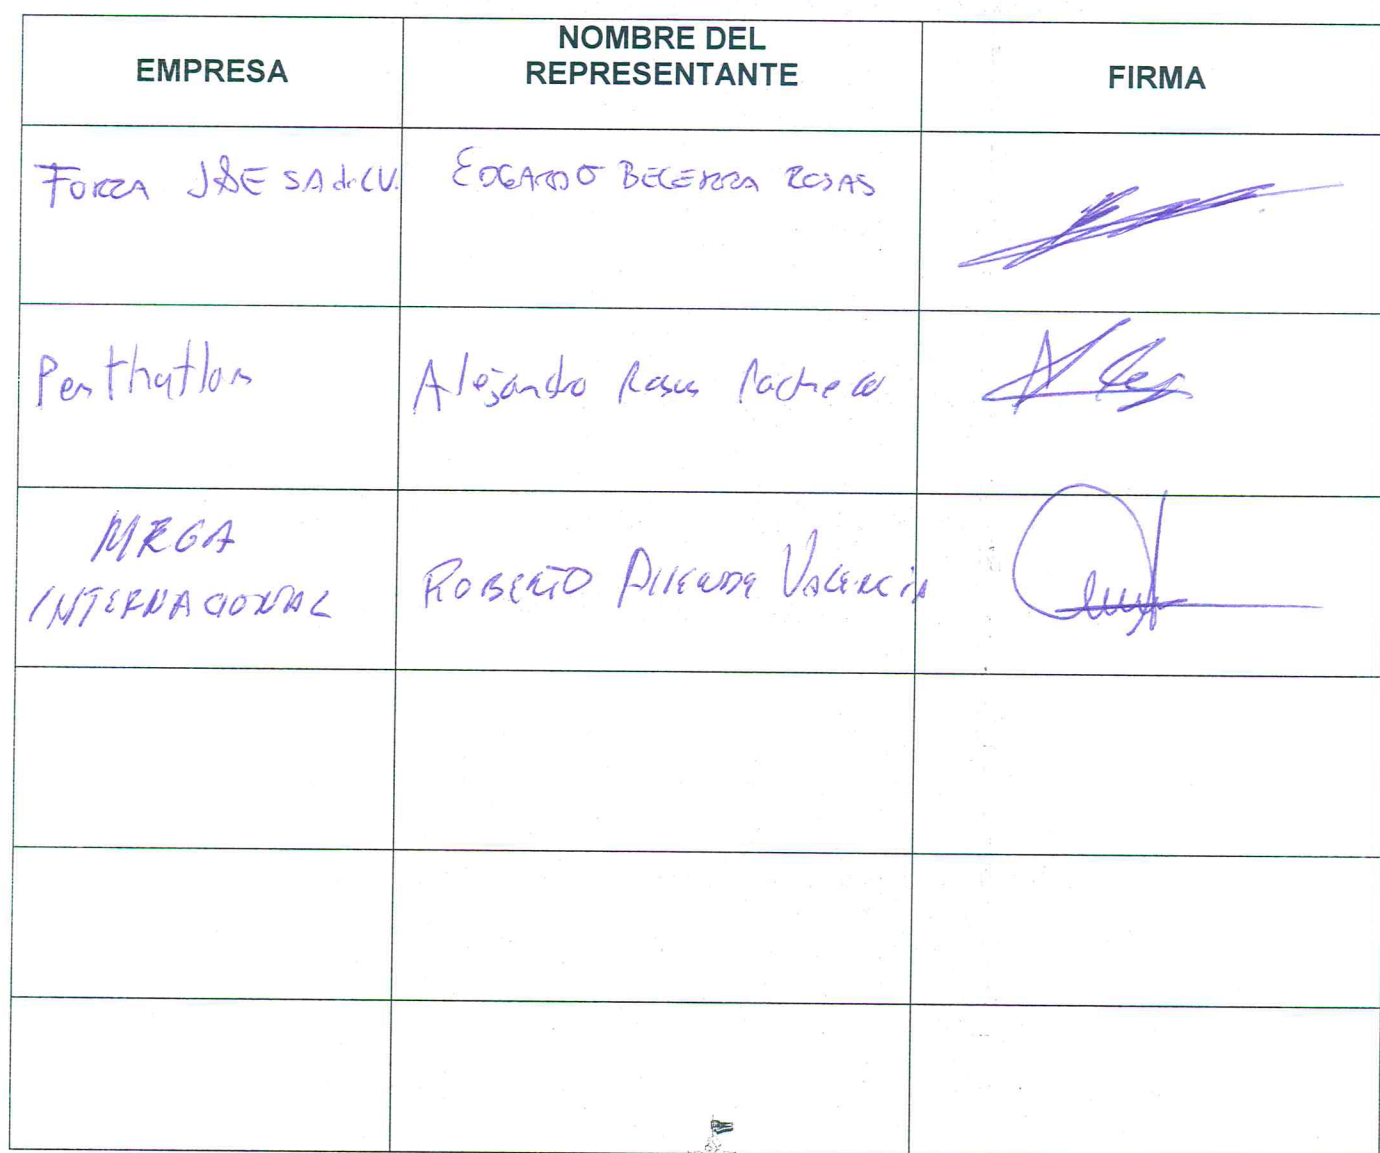 EMPRESA
NOMBRE DEL
REPRESENTANTE
FIRMA
FORZA J&E SA de CV.
EDGARDO BECERRA ROSAS
Penthatlon
Alejandro Rosas Pacheco
MEGA
INTERNACIONAL
ROBERTO ALLENDE VALENCIA